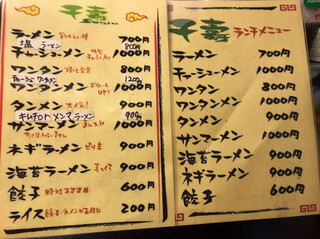 千喜
ラーメン 700円
塩 ラーメン 800円
チャーシューメン 1000円
ワンタン 800円
チャーシューワンタンメン 1200円
ワンタンメン 1000円
タンメン 大人気! 900円
キムチorメンマラーメン 900円
サンマーメン 1000円
ネギラーメン ピリ辛 900円
海苔ラーメン 900円
餃子 600円
ライス 200円
千喜 ランチメニュー
ラーメン 700円
チャーシューメン 1000円
ワンタン 800円
ワンタンメン 1000円
タンメン 900円
サンマーメン 1000円
海苔ラーメン 900円
ネギラーメン 900円
餃子 600円